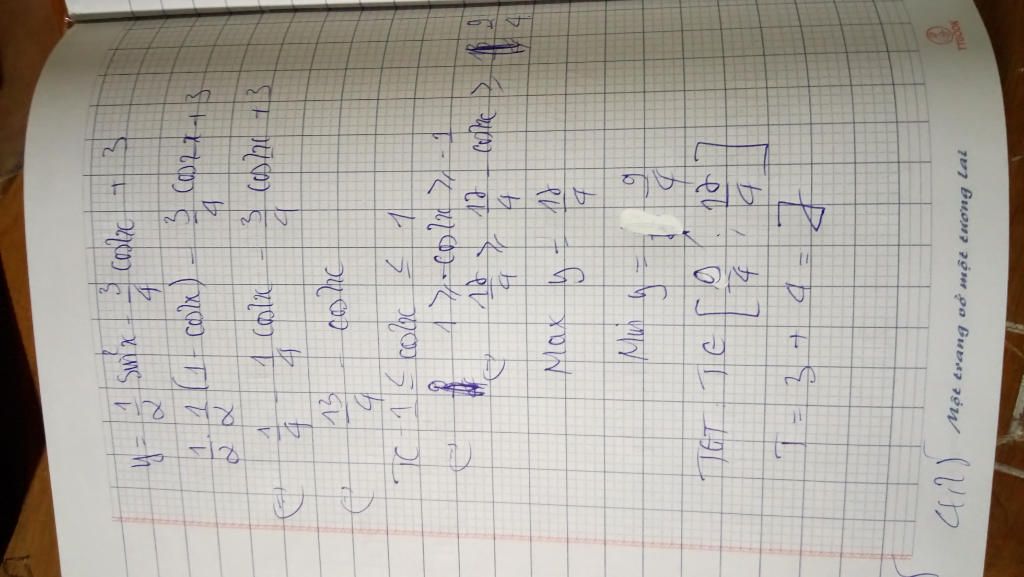 y = 1/2 sin²x - 3/4 cos2x + 3
1/2 . 1/2 (1 - cos2x) - 3/4 cos2x + 3
(=) 1/4 - 1/4 cos2x - 3/4 cos2x + 3
(=) 13/4 - cos2x
TC -1 ≤ cos2x ≤ 1
(=) 1 ⩾ -cos2x ⩾ -1
(=) 17/4 ⩾ 13/4 - cos2x ⩾ 9/4
Max y = 17/4
Min y = 9/4
TGT: T ∈ [9/4 ; 17/4]
T = 3 + 4 = 7
Một trang vở một tương lai
TIGON